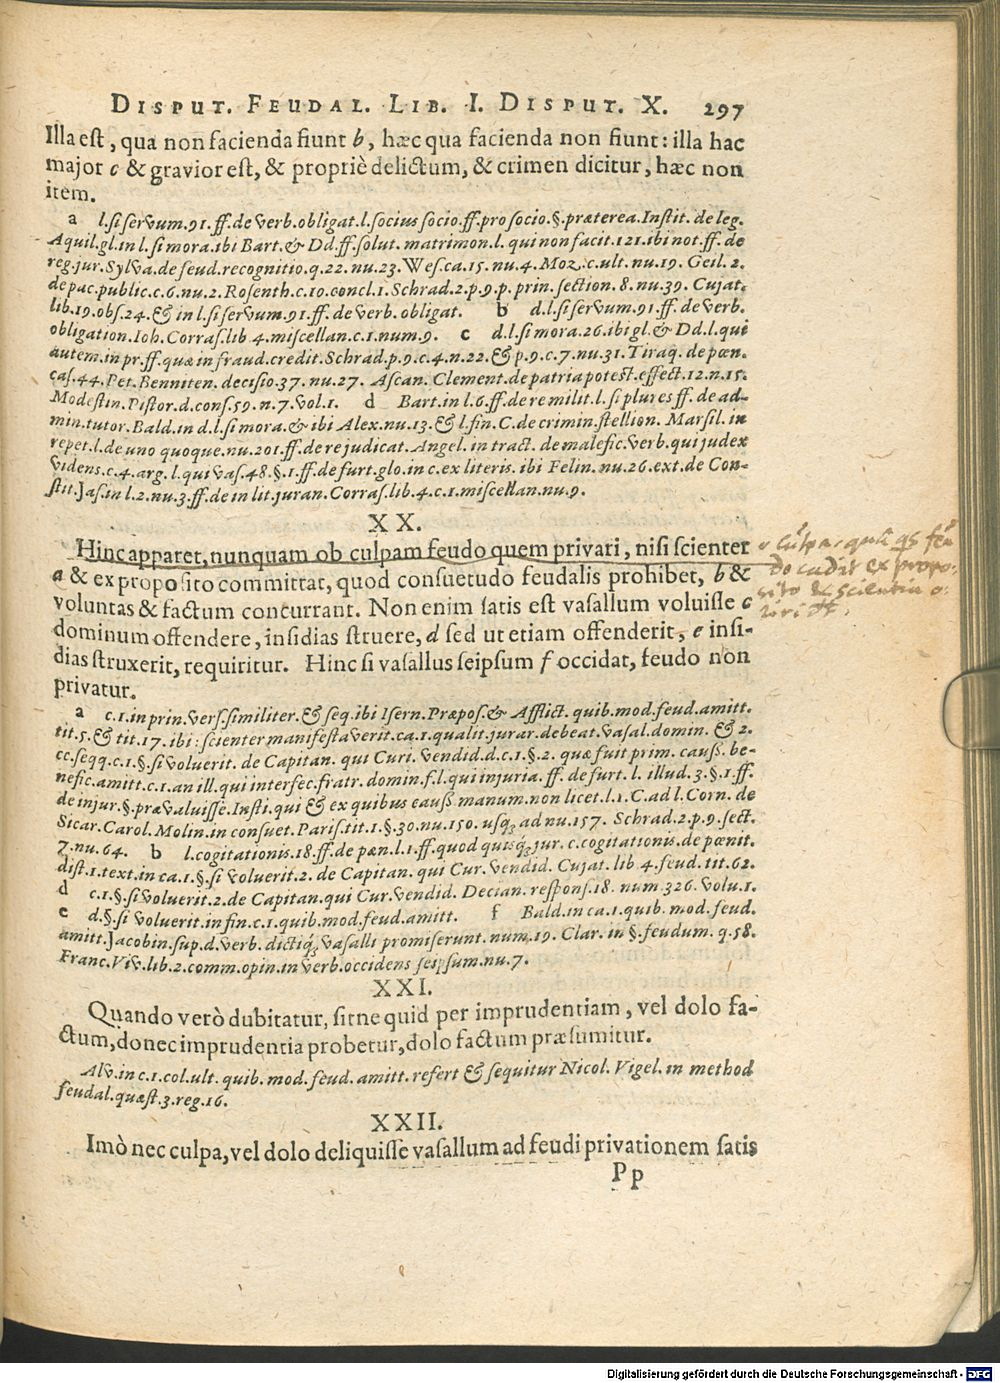 DISPUT. FEUDAL. LIB. I. DISPUT. X. 297
Illa est, qua non facienda fiunt b, hæc qua facienda non fiunt: illa hac
major c & gravior est, & propriè delictum, & crimen dicitur, hæc non
item.
a l. si servum. 91. ff. de verb. obligat. l. socius socio. ff. pro socio. §. præterea. Instit. de leg.
Aquil. gl. in l. si mora. ibi Bart. & Dd. ff. solut. matrimon. l. qui non facit. 121. ibi not. ff. de
reg. jur. Sylva. de feud. recognitio. q. 22. nu. 23. Wes. ca. 15. nu. 4. Moz. c. ult. nu. 19. Geil. 2.
de pac. public. c. 6. nu. 2. Rosenth. c. 10. concl. 1. Schrad. 2. p. 9. p. prin. section. 8. nu. 39. Cujat.
lib. 19. obs. 24. & in l. si servum. 91. ff. de verb. obligat. b d. l. si servum. 91. ff. de verb.
obligation. Joh. Corras. lib. 4. miscellan. c. 1. num. 9. c d. l. si mora. 26. ibi gl. & Dd. l. qui
autem. in pr. ff. quæ in fraud. credit. Schrad. p. 9. c. 4. n. 22. & p. 9. c. 7. nu. 31. Tiraq. de pœn.
cas. 44. Pet. Benniten. decisio. 37. nu. 27. Ascan. Clement. de patria potest. effect. 12. n. 15.
Modestin. Pistor. d. cons. 59. n. 7. vol. 1. d Bart. in l. 6. ff. de re milit. l. si plures ff. de ad-
min. tutor. Bald. in d. l. si mora. & ibi Alex. nu. 13. & l. fin. C. de crimin. stellion. Marsil. in
repet. l. de uno quoque. nu. 201. ff. de re judicat. Angel. in tract. de malefic. verb. qui judex
videns. c. 4. arg. l. qui vas. 48. §. 1. ff. de furt. glo. in c. ex literis. ibi Felin. nu. 26. ext. de Con-
stit. Jas. in l. 2. nu. 3. ff. de in lit. juran. Corras. lib. 4. c. 1. miscellan. nu. 9.
XX.
Hinc apparet, nunquam ob culpam feudo quem privari, nisi scienter
a & ex proposito committat, quod consuetudo feudalis prohibet, b &
voluntas & factum concurrant. Non enim satis est vasallum voluisse c
dominum offendere, insidias struere, d sed ut etiam offenderit, e insi-
dias struxerit, requiritur. Hinc si vasallus seipsum f occidat, feudo non
privatur.
culpa, qua qs feu
do cadit ex propo-
sito & scientia o-
riri
a c. 1. in prin. vers. similiter. & seq. ibi Isern. Præpos. & Afflict. quib. mod. feud. amitt.
tit. 5. & tit. 17. ibi: scienter manifestaverit. ca. 1. qualit. jurar. debeat. vasal. domin. & 2.
cc. seqq. c. 1. §. si voluerit. de Capitan. qui Curi. vendid. d. c. 1. §. 2. quæ fuit prim. causs. be-
nefic. amitt. c. 1. an ill. qui interfec. fratr. domin. f. l. qui injuria. ff. de furt. l. illud. 3. §. 1. ff.
de injur. §. prævaluisse. Insti. qui & ex quibus eauss manum. non licet. l. 1. C. ad l. Corn. de
Sicar. Carol. Molin. in consuet. Paris. tit. 1. §. 30. nu. 150. usq; ad nu. 157. Schrad. 2. p. 9. sect.
7. nu. 64. b l. cogitationis. 18. ff. de pœn. l. 1. ff. quod quisq; jur. c. cogitationis. de pœnit.
dist. 1. text. in ca. 1. §. si voluerit. 2. de Capitan. qui Cur. vendid. Cujat. lib 4. feud. tit. 62.
d c. 1. §. si voluerit. 2. de Capitan. qui Cur. vendid. Decian. respons. 18. num. 326. volu. 1.
e d. §. si voluerit. in fin. c. 1. quib. mod. feud. amitt. f Bald. in ca. 1. quib. mod. feud.
amitt. Jacobin. sup. d. verb. dictiq; vasalli promiserunt. num. 19. Clar. in §. feudum. q. 58.
Franc. Viv. lib. 2. comm. opin. in verb. occidens seipsum. nu. 7.
XXI.
Quando verò dubitatur, sitne quid per imprudentiam, vel dolo fa-
ctum, donec imprudentia probetur, dolo factum præsumitur.
Alv. in c. 1. col. ult. quib. mod. feud. amitt. refert & sequitur Nicol. Vigel. in method
feudal. quæst. 3. reg. 16.
XXII.
Imò nec culpa, vel dolo deliquisse vasallum ad feudi privationem satis
Pp
Digitalisierung gefördert durch die Deutsche Forschungsgemeinschaft - DFG